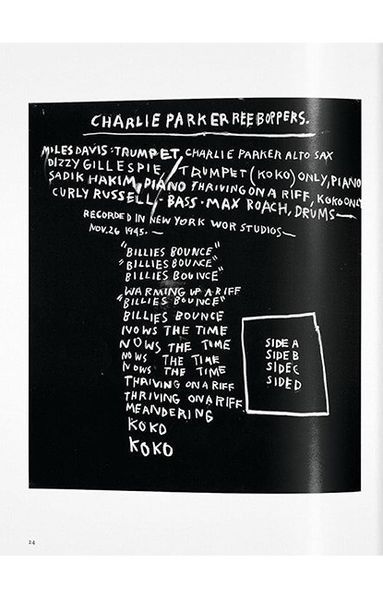 CHARLIE PARKER REEBOPPERS.
MILES DAVIS: TRUMPET, CHARLIE PARKER ALTO SAX
DIZZY GILLESPIE, TRUMPET (KOKO) ONLY, PIANO
SADIK HAKIM, PIANO THRIVING ON A RIFF, KOKO ONLY
CURLY RUSSELL: BASS · MAX ROACH, DRUMS—
RECORDED IN NEW YORK WOR STUDIOS—
NOV. 26 1945. —
"BILLIES BOUNCE"
"BILLIES BOUNCE"
BILLIES BOUNCE
WARMING UP A RIFF
"BILLIES BOUNCE"
BILLIES BOUNCE
NOWS THE TIME
NOWS THE TIME
NOWS THE TIME
NOWS THE TIME
THRIVING ON A RIFF
THRIVING ON A RIFF
MEANDERING
KOKO
KOKO
SIDE A
SIDE B
SIDE C
SIDE D
24